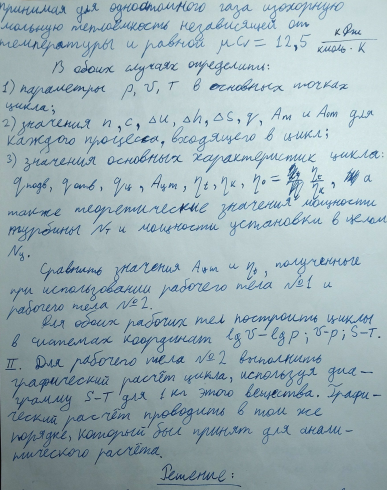 принимая для одноатомного газа изохорную
мольную теплоёмкость независящей от
температуры и равной μcv = 12,5 кДж/кмоль·К
В обоих случаях определить:
1) параметры p, v, T в основных точках
цикла;
2) значения n, c, Δu, Δh, Δs, q, Am и Am для
каждого процесса, входящего в цикл;
3) значения основных характеристик цикла:
qподв, qотв, qц, Aцm, ηt, ηк, η0 = ηt/ηк, а
также теоретические значения мощности
турбины Nт и мощности установки в целом
Nц.
Сравнить значения Aцm и ηt, полученные
при использовании рабочего тела №1 и
рабочего тела №2.
Для обоих рабочих тел построить циклы
в системах координат lg v - lg p; v-p; S-T.
II. Для рабочего тела №2 выполнить
графический расчёт цикла, используя диа-
грамму S-T для 1 кг этого вещества. Графи-
ческий расчёт проводить в том же
порядке, который был принят для анали-
тического расчёта.
Решение: